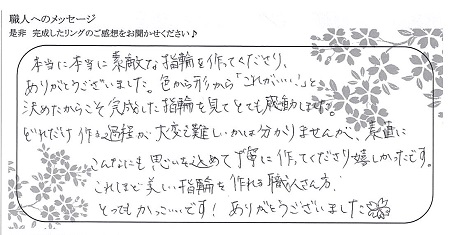 職人へのメッセージ
是非 完成したリングのご感想をお聞かせください♪
本当に本当に素敵な指輪を作ってくださり、
ありがとうございました。色から形から「これがいい!」と
決めたからこそ完成した指輪を見てとても感動しました。
どれだけ作る過程が大変で難しいかは分かりませんが、素直に
こんなにも思いを込めて丁寧に作ってくださり嬉しかったです。
これほど美しい指輪を作れる職人さん方、
とってもかっこいいです! ありがとうございました